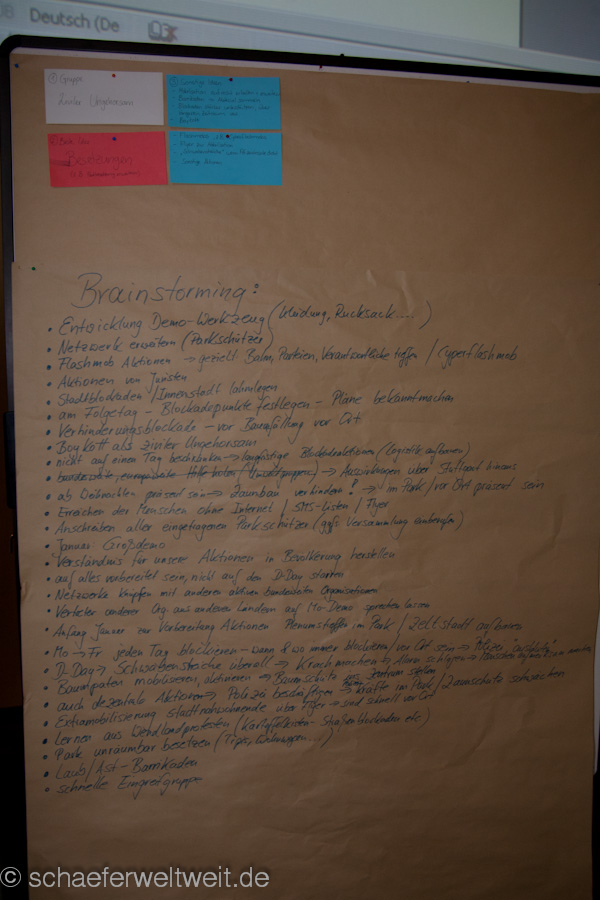 Deutsch (De
① Gruppe
Ziviler Ungehorsam
Besetzungen
Brainstorming:
• Entwicklung Demo-Werkzeug (Kleidung, Rucksack....)
• Netzwerk erweitern (Parkschützer)
• Flashmob Aktionen → gezielt Bahn, Parteien, Verantwortliche treffen / Cyperflashmob
• Aktionen von Juristen
• Stadtblockaden / Innenstadt lahmlegen
• am Folgetag - Blockadepunkte festlegen - Pläne bekanntmachen
• Verhinderungsblockade - vor Baumfällung vor Ort
• Boykott als ziviler Ungehorsam
• nicht auf einen Tag beschränken → langfristige Blockadeaktionen (Logistik aufbauen)
• bundesweite, europaweite Hilfe holen (Umweltgruppen) → Auswirkungen über Stuttgart hinaus
• ab Weihnachten präsent sein → Zaunbau verhindern! → im Park / vor Ort präsent sein
• Erreichen der Menschen ohne Internet / SMS-Listen / Flyer
• Anschreiben aller eingetragenen Parkschützer (ggfs Versammlung einberufen)
• Januar: Großdemo
• Verständnis für unsere Aktionen in Bevölkerung herstellen
• auf alles vorbereitet sein, nicht auf den D-Day starren
• Netzwerke knüpfen mit anderen aktiven bundesweiten Organisationen
• Vertreter anderer Org. aus anderen Ländern auf Mo-Demo sprechen lassen
• Anfang Januar zur Vorbereitung Aktionen Plenumstreffen im Park / Zeltstadt aufbauen
• Mo → Fr jeden Tag blockieren - wann & wo immer blockieren / vor Ort sein → Polizei
• D-Day → Schwabenstreiche überall → Krach machen → Alarm schlagen →
• Baumpaten mobilisieren, aktivieren → Baumschutz Zentrum stellen
• auch dezentrale Aktionen → Polizei beschäftigen → Kräfte im Park / Zaunschutz schwächen
• Extramobilisierung stadtnahwohnende über Flyer → sind schnell vor Ort
• Lernen aus Wendlandprotesten (Kartoffelaktion - Straßenblockaden etc)
• Park unräumbar besetzen (Tipis, ...)
• Laub / Ast - Barrikaden
• schnelle Eingreifgruppe
© schaeferweltweit.de